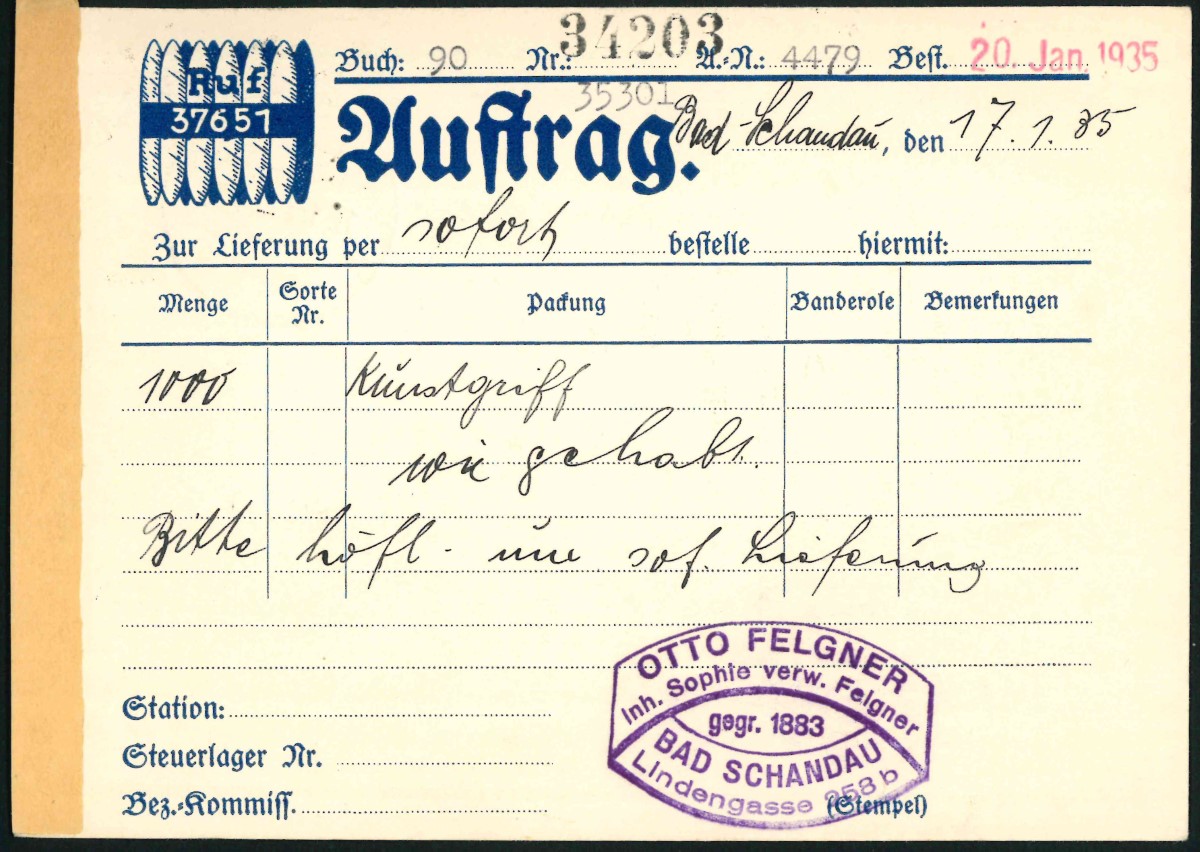 Ruf
37651
Buch: 90 Nr.: 34203 A.-N.: 4479 Best. 20. Jan. 1935
35301
Auftrag.
Bad Schandau, den 17.1.35
Zur Lieferung per sofort bestelle hiermit:
Menge Sorte Nr. Packung Banderole Bemerkungen
1000 Kunstgriff
wie gehabt.
Bitte höfl. um sof. Lieferung
OTTO FELGNER
Inh. Sophie verw. Felgner
gegr. 1883
BAD SCHANDAU
Lindengasse 258 b
Station:
Steuerlager Nr.
Bez.-Kommiss.
(Stempel)